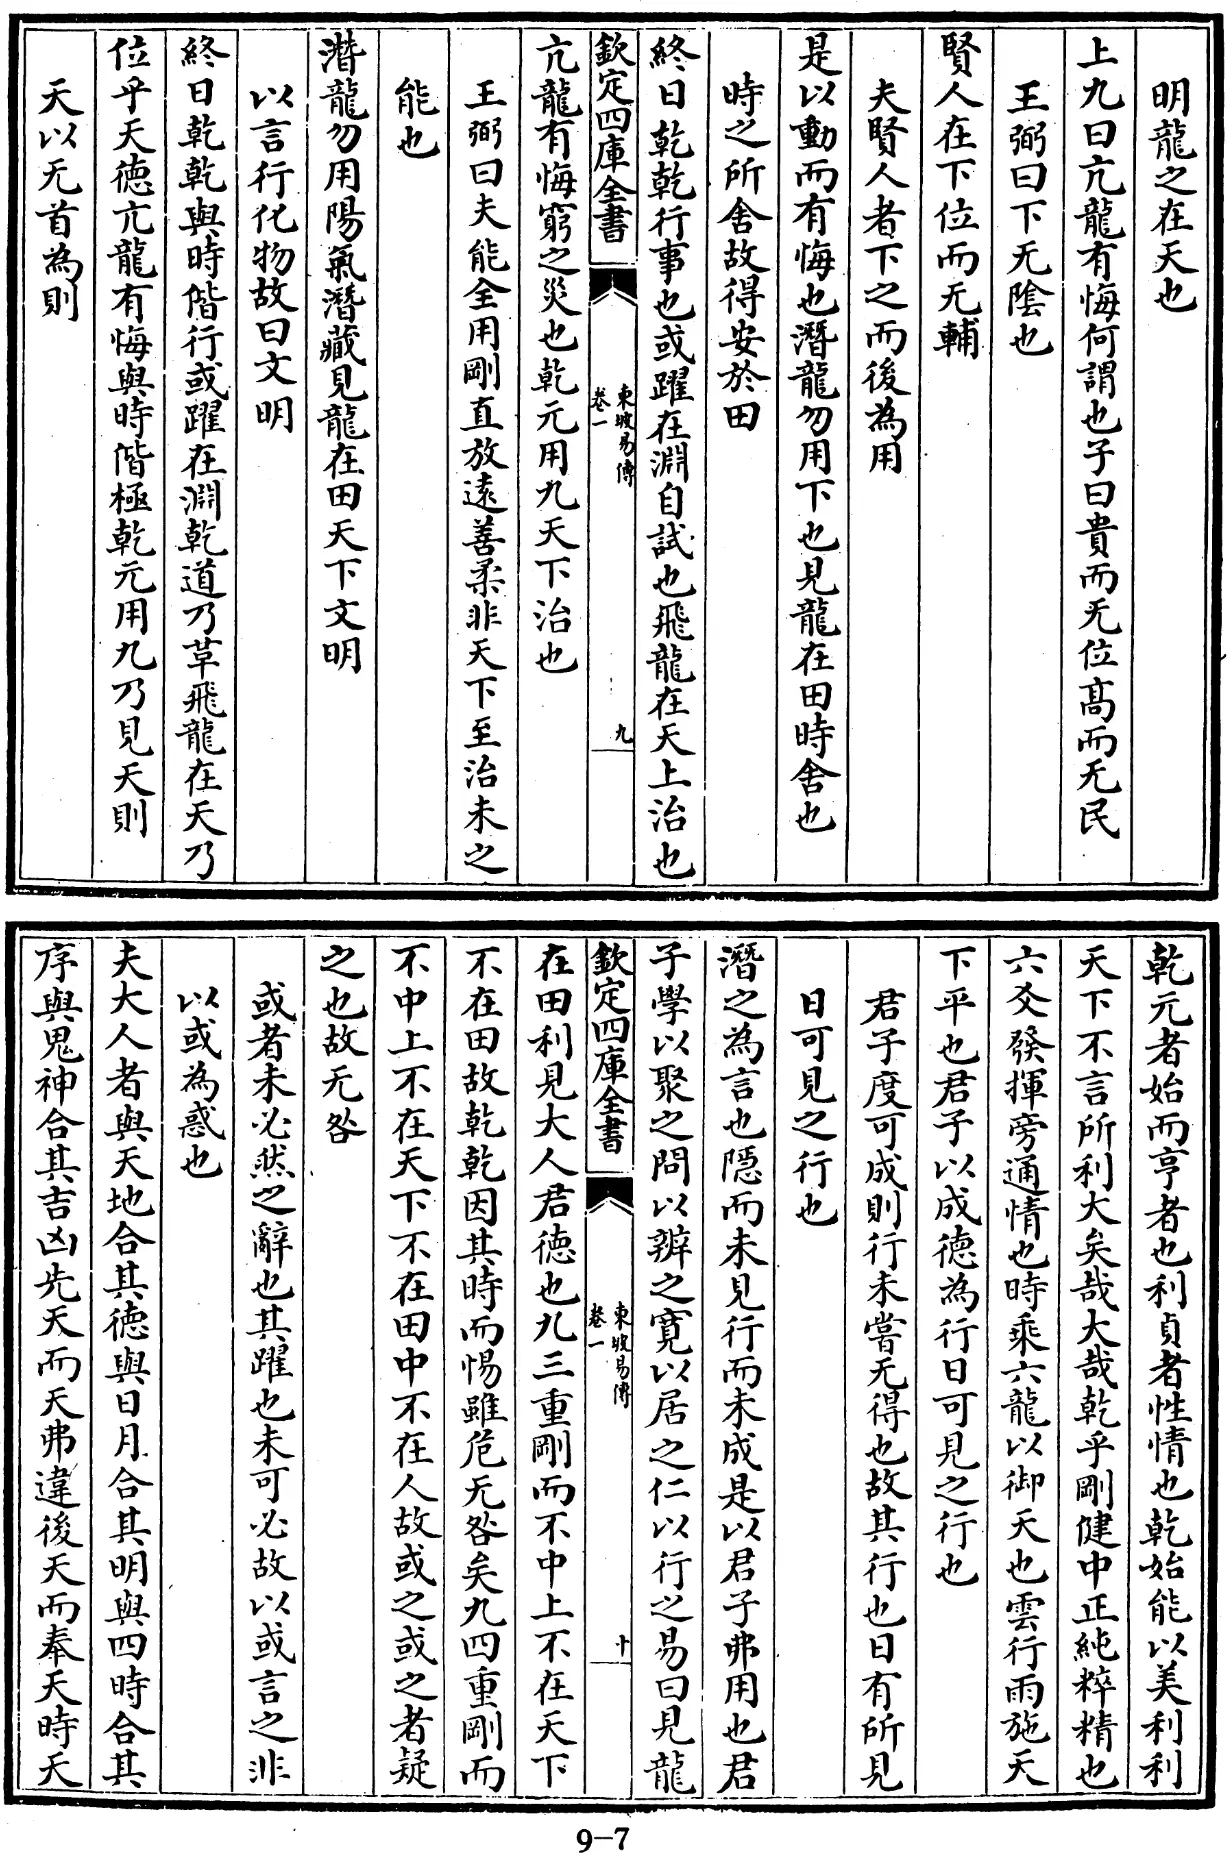 明龍之在天也
上九曰亢龍有悔何謂也子曰貴而无位髙而无民
王弼曰下无隂也
賢人在下位而无輔
夫賢人者下之而後為用
是以動而有悔也潛龍勿用下也見龍在田時舍也
時之所舍故得安於田
終日乾乾行事也或躍在淵自試也飛龍在天上治也
欽定四庫全書
東坡易傳
卷一
九
亢龍有悔窮之災也乾元用九天下治也
王弼曰夫能全用剛直放遠善柔非天下至治未之
能也
潛龍勿用陽氣潛藏見龍在田天下文明
以言行化物故曰文明
終日乾乾與時偕行或躍在淵乾道乃革飛龍在天乃
位乎天徳亢龍有悔與時偕極乾元用九乃見天則
天以无首為則
乾元者始而亨者也利貞者性情也乾始能以美利利
天下不言所利大矣哉大哉乾乎剛健中正純粹精也
六爻發揮旁通情也時乗六龍以御天也雲行雨施天
下平也君子以成徳為行日可見之行也
君子度可成則行未嘗无得也故其行也日有所見
日可見之行也
潛之為言也隱而未見行而未成是以君子弗用也君
子學以聚之問以辨之寛以居之仁以行之易曰見龍
欽定四庫全書
東坡易傳
卷一
十
在田利見大人君徳也九三重剛而不中上不在天下
不在田故乾乾因其時而惕雖危无咎矣九四重剛而
不中上不在天下不在田中不在人故或之或之者疑
之也故无咎
或者未必然之辭也其躍也未可必故以或言之非
以或為惑也
夫大人者與天地合其徳與日月合其明與四時合其
序與鬼神合其吉凶先天而天弗違後天而奉天時天
9-7